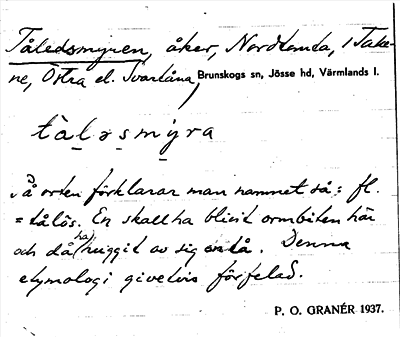 Tåledsmyren, åker, Nordtomta, 1 Take-
ne, Östra el. Svartåna, Brunskogs sn, Jösse hd, Värmlands l.
tàləsmỳra
På orten förklarar man namnet så: fl.
= tålös. En skall ha blivit ormbiten här
och då ha huggit av sig en tå. Denna
etymologi givetvis förfelad.
P. O. GRANÉR 1937.